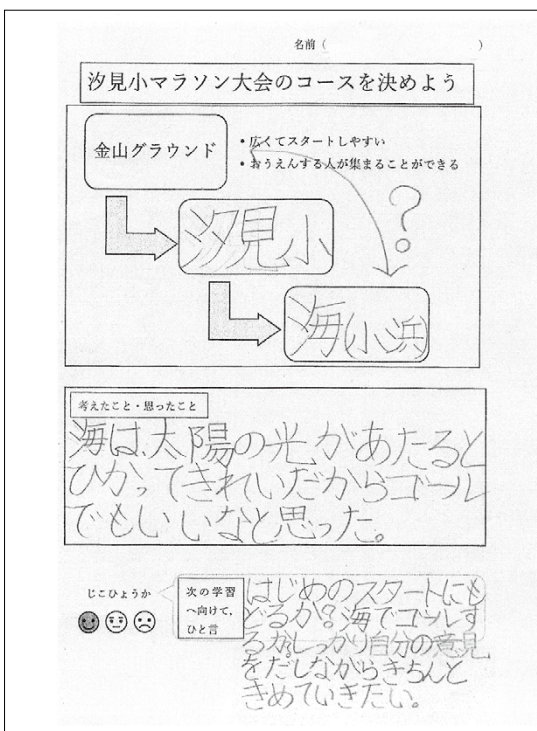 名前（　　　　　　　　）
汐見小マラソン大会のコースを決めよう
金山グラウンド
・広くてスタートしやすい
・おうえんする人が集まることができる
？
汐見小
海(小浜)
考えたこと・思ったこと
海は、太陽の光があたると
ひかってきれいだからゴール
でもいいなと思った。
じこひょうか
次の学習
へ向けて，
ひと言
はじめのスタートにも
どるか？海でゴールす
るか？しっかり自分の意見
をだしながらきちんと
きめていきたい。